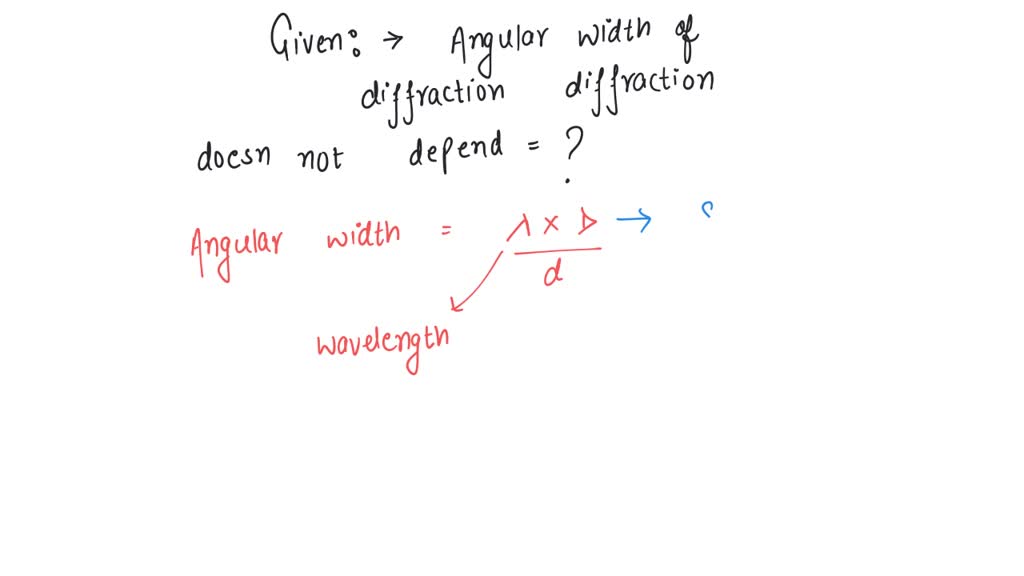 Given: → Angular width of
diffraction diffraction
doesn not depend = ?
Angular width = λ × D →
d
wavelength